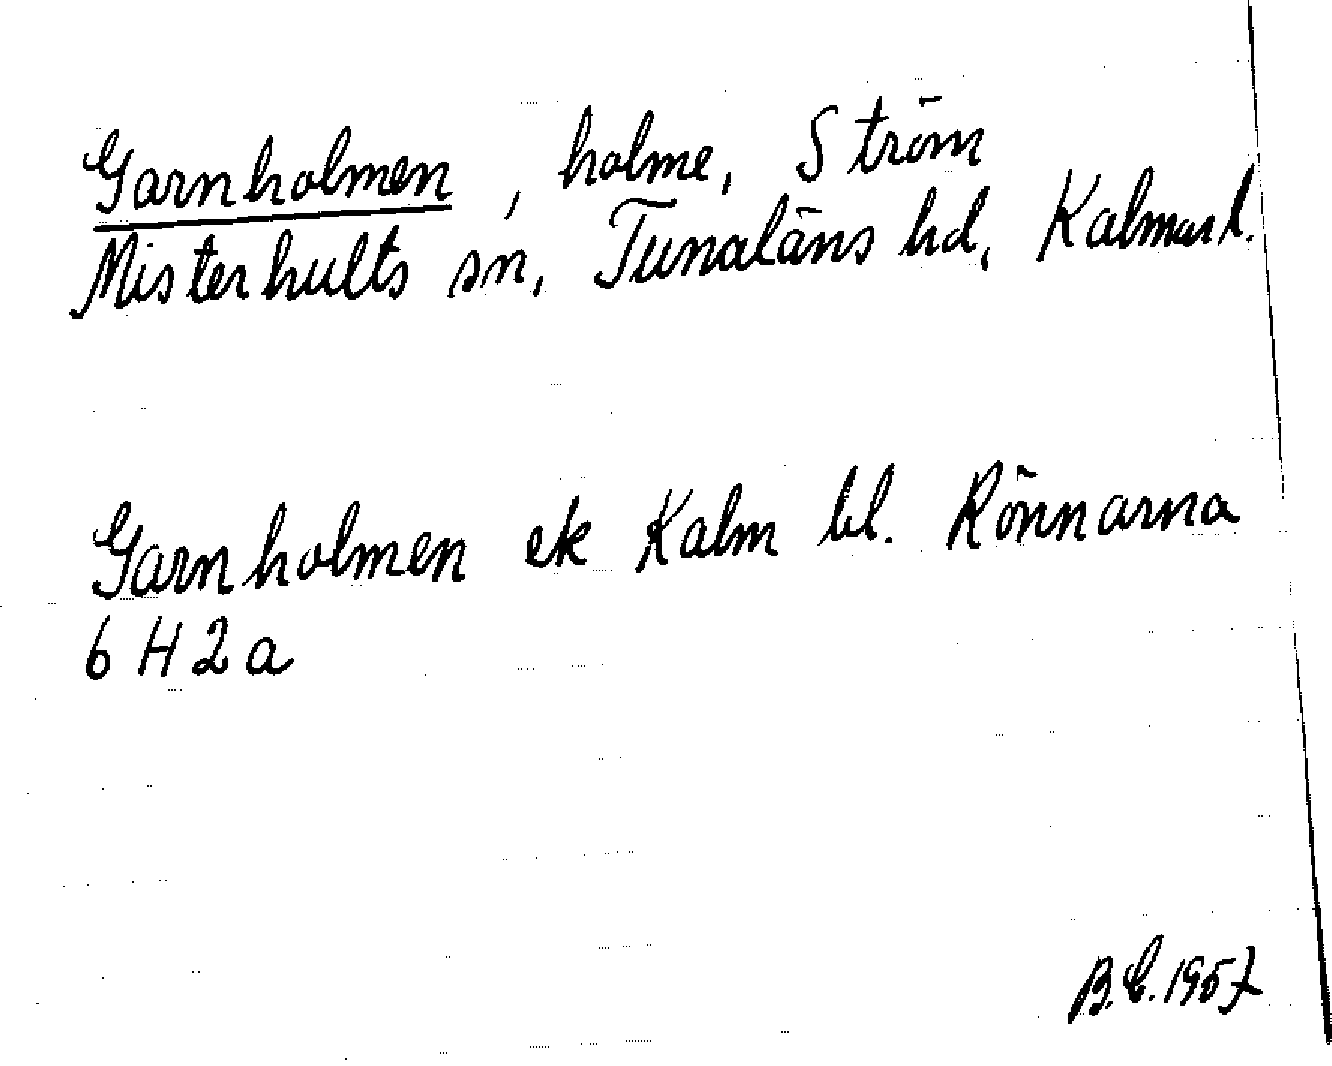 Garnholmen, holme, Ström
Misterhults sn, Tunaläns hd, Kalmar l.
Garnholmen ek Kalm bl. Rönnarna
6 H 2 a
B.E. 1957